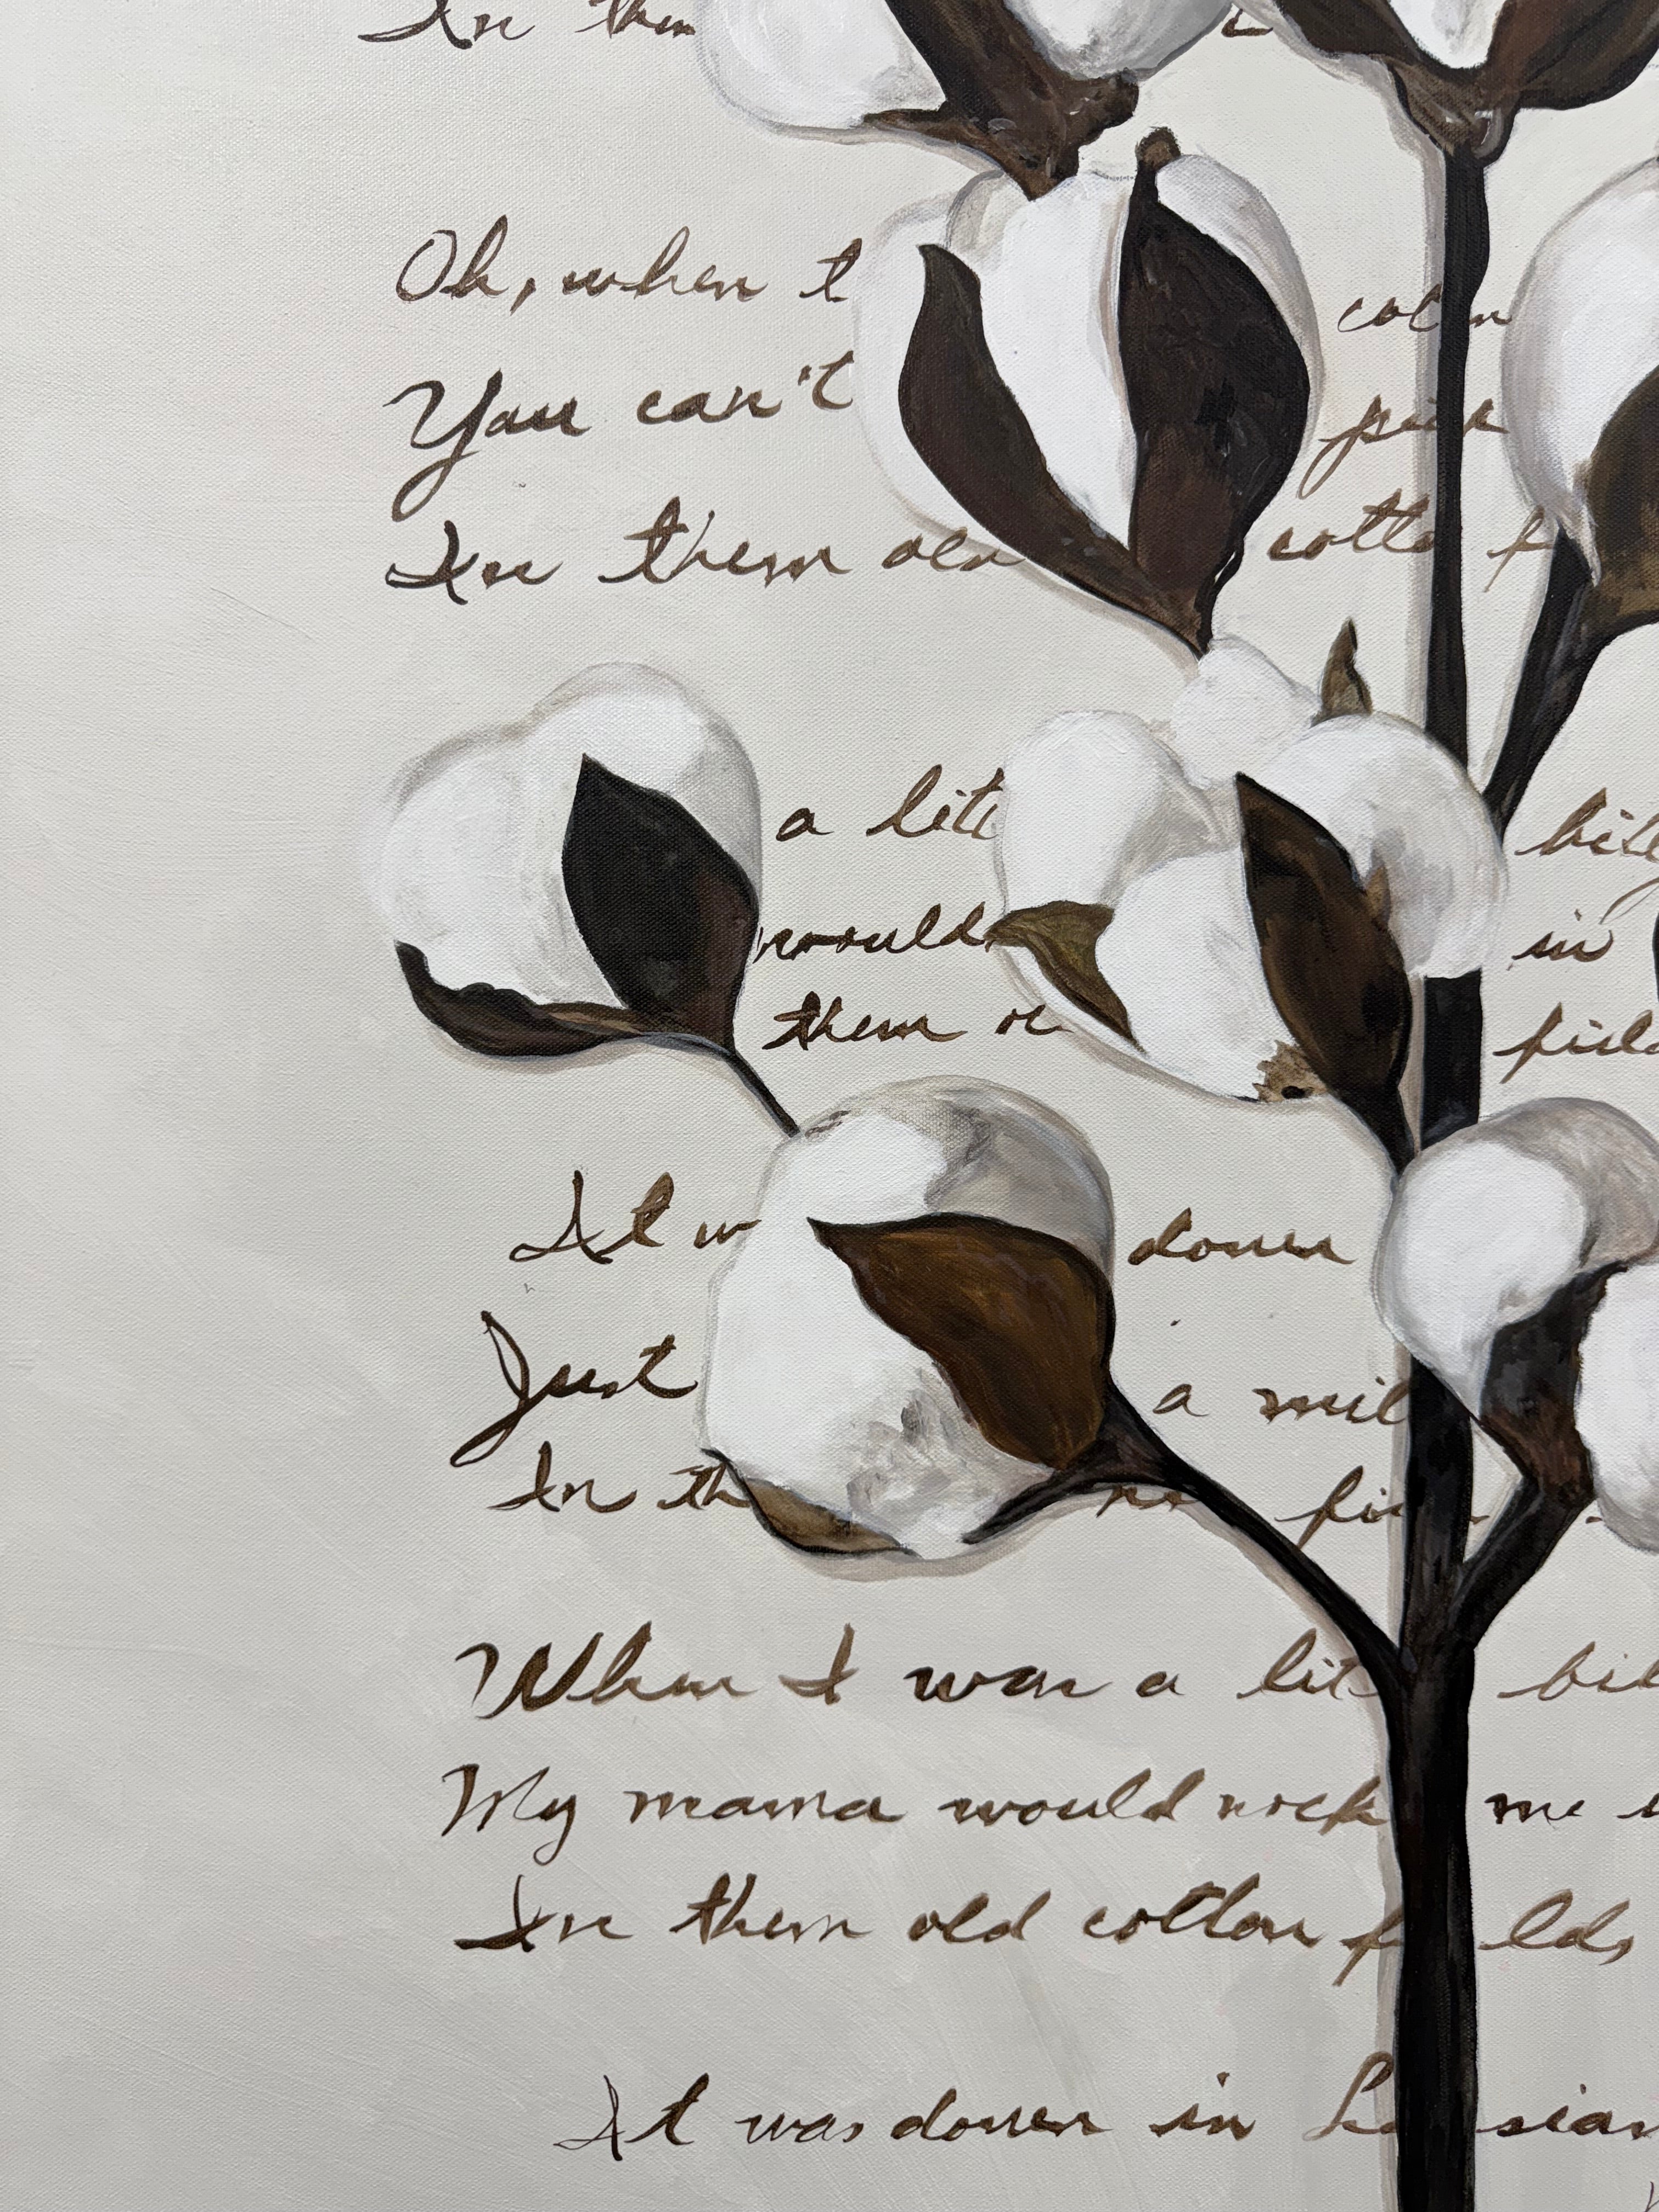 In them
Oh, when t cot n
You can't pick
In them old cotto f
a litt bitty
would in
them ol field
It w down
Just a mil
In th n fi
When I was a lit bit
My mama would rock me i
In them old cotton f lds,
It was down in Lo isian